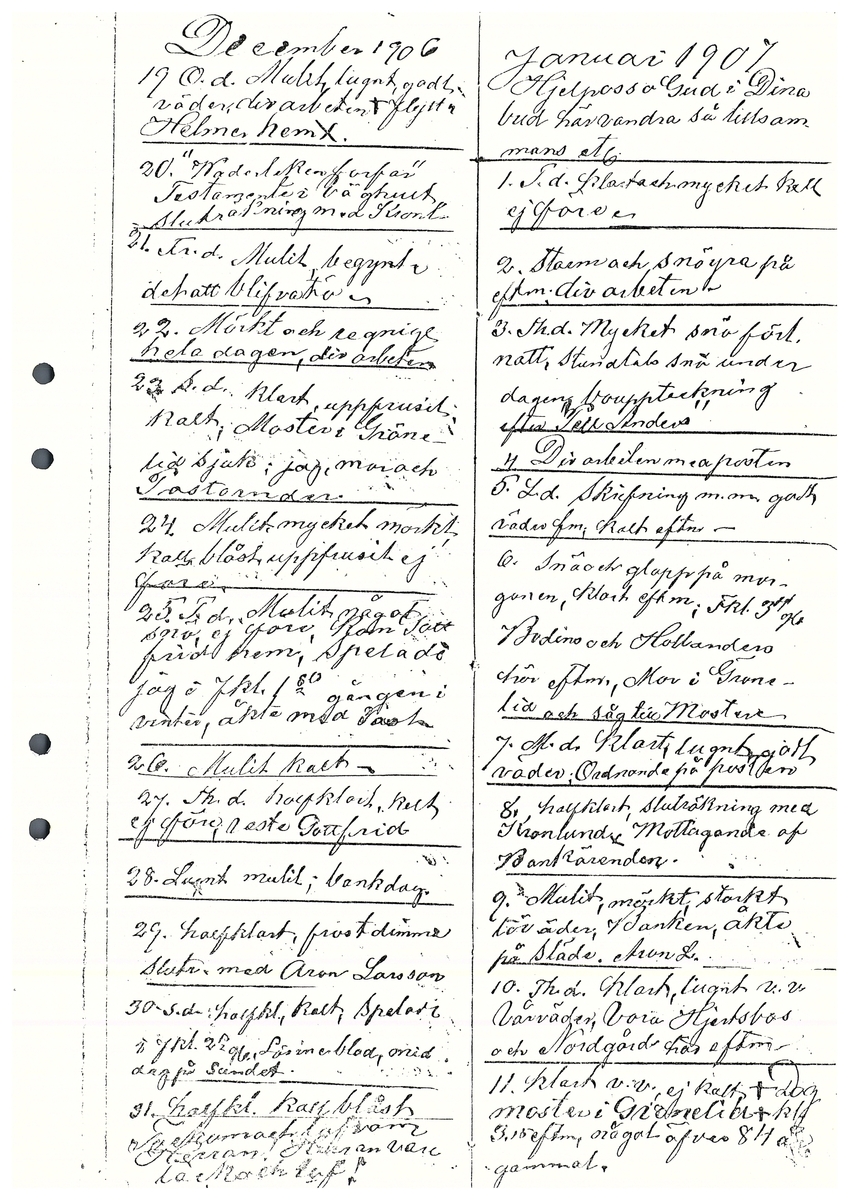 December 1906
19 O.d. Mulit, lugnt, godt
väder, div arbeten + flytt
Helmer hem X.
20. "Waderleken forfar"
Testamente i Väghult
Sluträkning med Kronl.
21. Fr.d. Mulit, begynte
det att blifva tö
22. Mörkt och regnigt
hela dagen, div arbeten
23 S.d. Klart, uppfrusit
Kalt, Moster i Gröne-
lid sjuk; jag, mor och
24. Mulit mycket mörkt
kallt, blåst, uppfrusit ej
före.
25. T.d. Mulit något
snö, ej före, kom Gott
frid hem, spelade
jag i fkl. gången i
vinter, åkte med
26. Mulit Kalt
27. Th.d. halfklart, kalt
ej före, reste Gottfrid
28. Lugnt mulit; bankdag.
29. halfklart, frost dimma
Slutr. med Aron Larsson
30. S.d. halfkl, Kalt, spelade
i fkl.
dag på Sundet.
31. halfkl. Kallt blåst
Herran! Herran vare
låf och lof!
Januari 1907
Hjelp oss o Gud i Dina
bud här vandra så tillsam
mans etc
1. T.d. Klart och mycket kallt
ej före
2. Storm och snöyra på
eftm; div arbeten
3. Th.d. Mycket snö förl.
natt, stundtals snö under
dagen, bouppteckning
efter "Pell Anders"
4 Div arbeten med posten
5. L.d. Skrifning m.m. godt
väder fm, kalt eftm
6. Snö och glopp på mor-
gonen, klart eftm; fkl.
Bodins och Hollanders
här eftm, Mor i Gröne-
lid och såg till Moster
7. M.d. Klart, lugnt, godt
väder; Ordnande på posten
8, halfklart, sluträkning med
Kronlund, Mottagande af
Bankärenden.
9. Mulit, mörkt, starkt
töväder, Banken, åkte
på släde. Aron L.
10. Th.d. Klart, lugnt v.v.
Vårväder, Vora Hjertsbos
och Nordgårds här eftm
11. Klart v.v. ej kalt + Dog
moster i Grönelid + kl
3,15 eftm, något öfver 84 år
gammal.